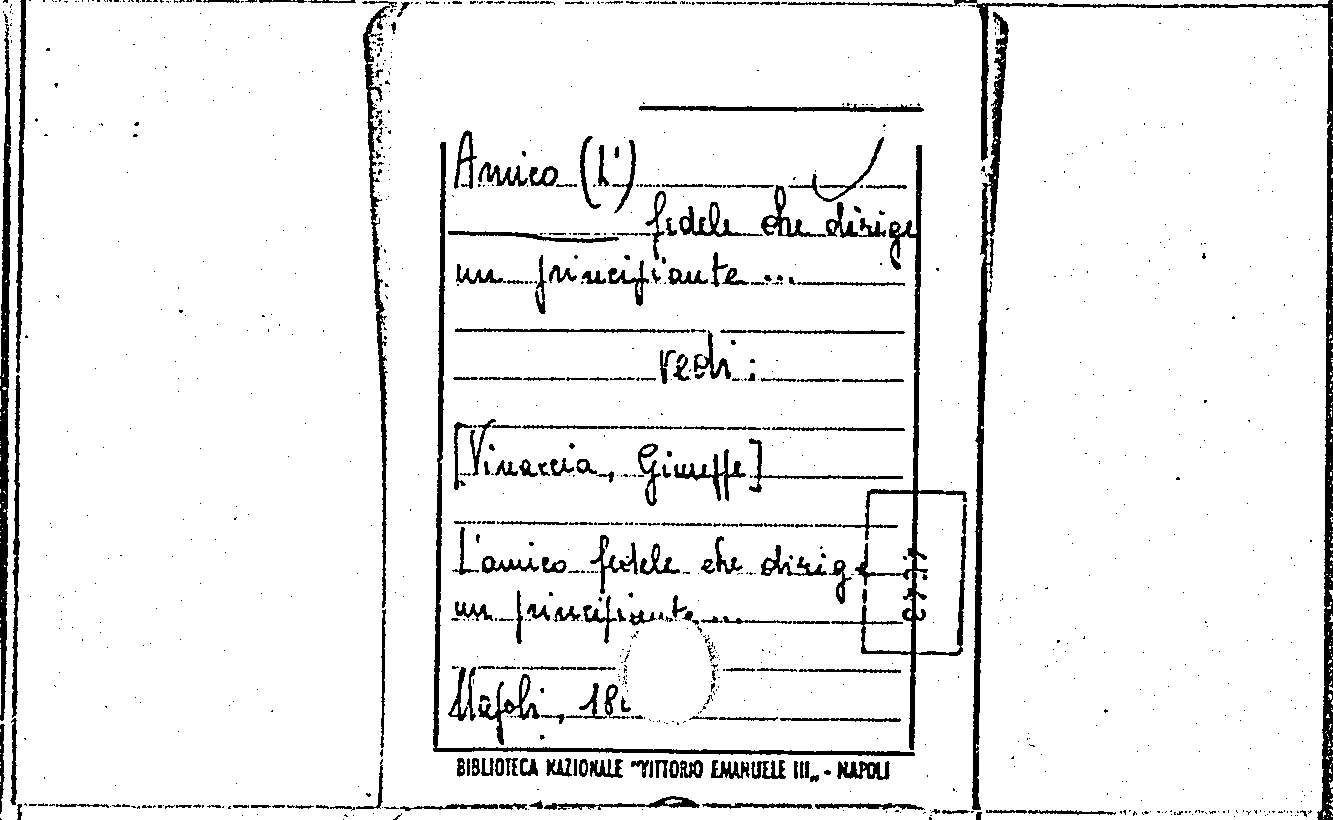 Amico (L')
fedele che dirige
un principiante...
vedi:
[Vinaccia, Giuseppe]
L'amico fedele che dirige
un principiante...
Napoli, 18
BIBLIOTECA NAZIONALE "VITTORIO EMANUELE III„ - NAPOLI